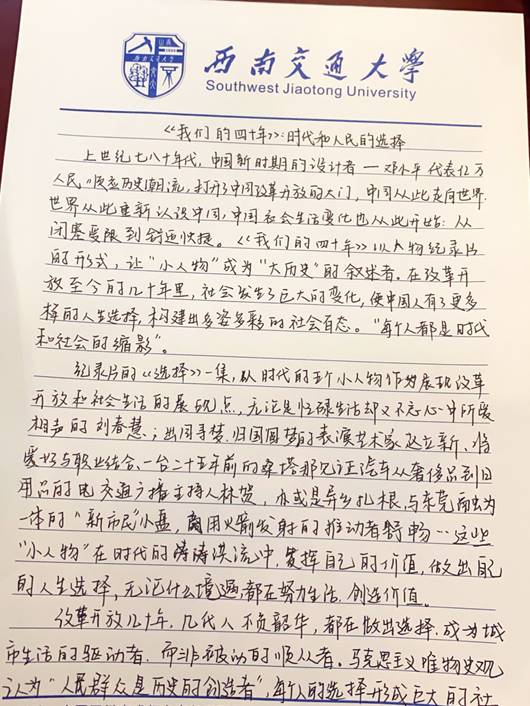 西南交通大学
Southwest Jiaotong University
《我们的四十年》:时代和人民的选择
上世纪七八十年代,中国新时期的设计者—邓小平代表亿万
人民顺应历史潮流,打开了中国改革开放的大门,中国从此走向世界.
世界从此重新认识中国,中国社会生活变化也从此开始:从
闭塞受限到舒适快捷。《我们的四十年》以人物纪录片
的形式,让“小人物”成为“大历史”的叙述者。在改革开
放至今的几十年里,社会发生了巨大的变化,使中国人有了更多
择的人生选择,构建出多姿多彩的社会百态。“每个人都是时代
和社会的缩影”。
纪录片的《选择》一集,从时代的五个小人物作为展现改革
开放和社会生活的展现点,无论是忙碌生活却又不忘心中所爱
相声的刘春慧;出国寻梦.归国圆梦的表演艺术家赵立新、将
爱好与职业结合、一台二十五年前的桑塔那见证汽车从奢侈品到日
用品的电交通广播主持人林贺,亦或是异乡扎根,与东莞融为
一体的“新市民”小磊,商用火箭发射的推动者舒畅…这些
“小人物”在时代的涛涛洪流中,发挥自己的价值,做出自己
的人生选择,无论什么境遇都在努力生活.创造价值。
改革开放几十年,几代人不负韶华,都在做出选择.成为城
市生活的驱动者.而非被动的顺从者。马克思主义唯物史观
认为“人民群众是历史的创造者”,每个人的选择形成巨大的社